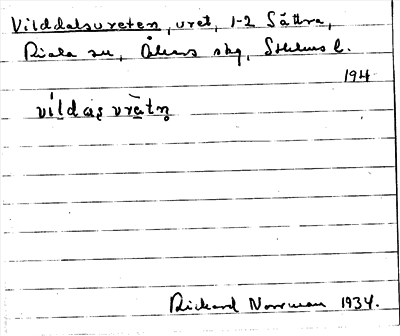 Vilddalsvreten, vret, 1-2 Sättra,
Riala sn, Åkers skg, Sthlms l.
194
vildas vretn̥
Rickard Norrman 1934.